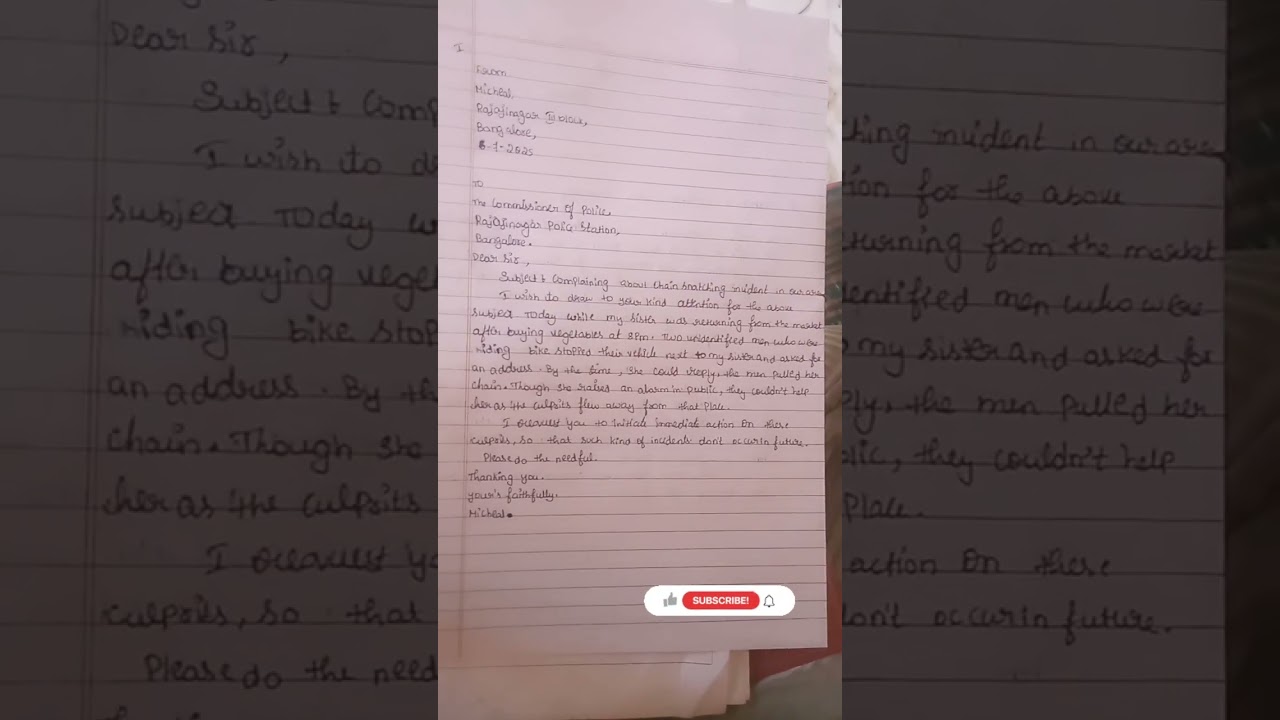 I
From
Micheal,
Rajajinagar II block,
Bangalore,
6-1-2025
To
The Commissioner of Police,
Rajajinagar Police Station,
Bangalore.
Dear Sir,
Subject: Complaining about Chain Snatching incident in our area
I wish to draw to your kind attention for the above
subject Today while my sister was returning from the market
after buying vegetables at 8Pm, Two unidentified men who were
riding bike stopped their vehicle next to my sister and asked for
an address. By the time, she could reply, the men pulled her
chain. Though she raises an alarm in public, they couldn't help
her as the culprits flew away from that place.
I request you to initiate immediate action on these
culprits, so that such kind of incidents don't occur in future.
Please do the needful.
Thanking you.
Your's faithfully.
Micheal.
SUBSCRIBE!